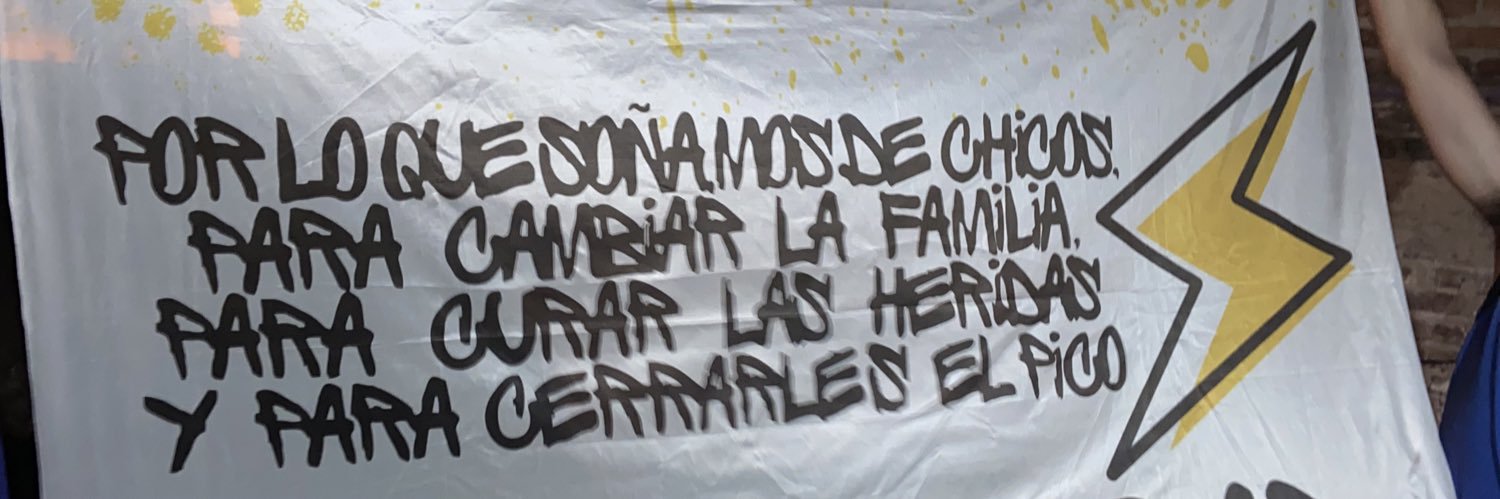 POR LO QUE SOÑAMOS DE CHiCOS,
PARA CAMBiAR LA FAMiLiA,
PARA CURAR LAS HERiDAS
Y PARA CERRARLES EL PiCO